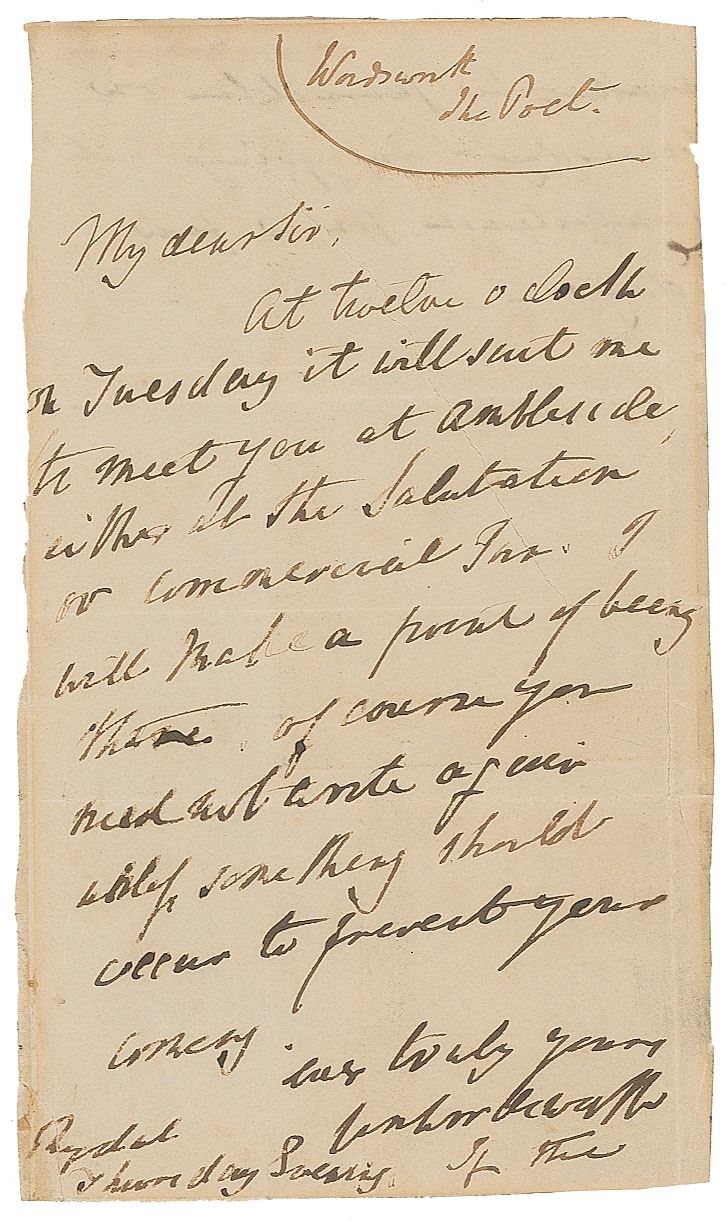 Wordsworth
The Poet.
My dear Sir,
At twelve o clock
on Tuesday it will suit me
to meet you at Ambleside,
either at the Salutation
or Commercial Inn. I
will make a point of being
there. of course you
need not write again
unless something should
occur to prevent your
coming.
ever truly yours
Wm Wordsworth
Rydal
Thursday Evening. If the